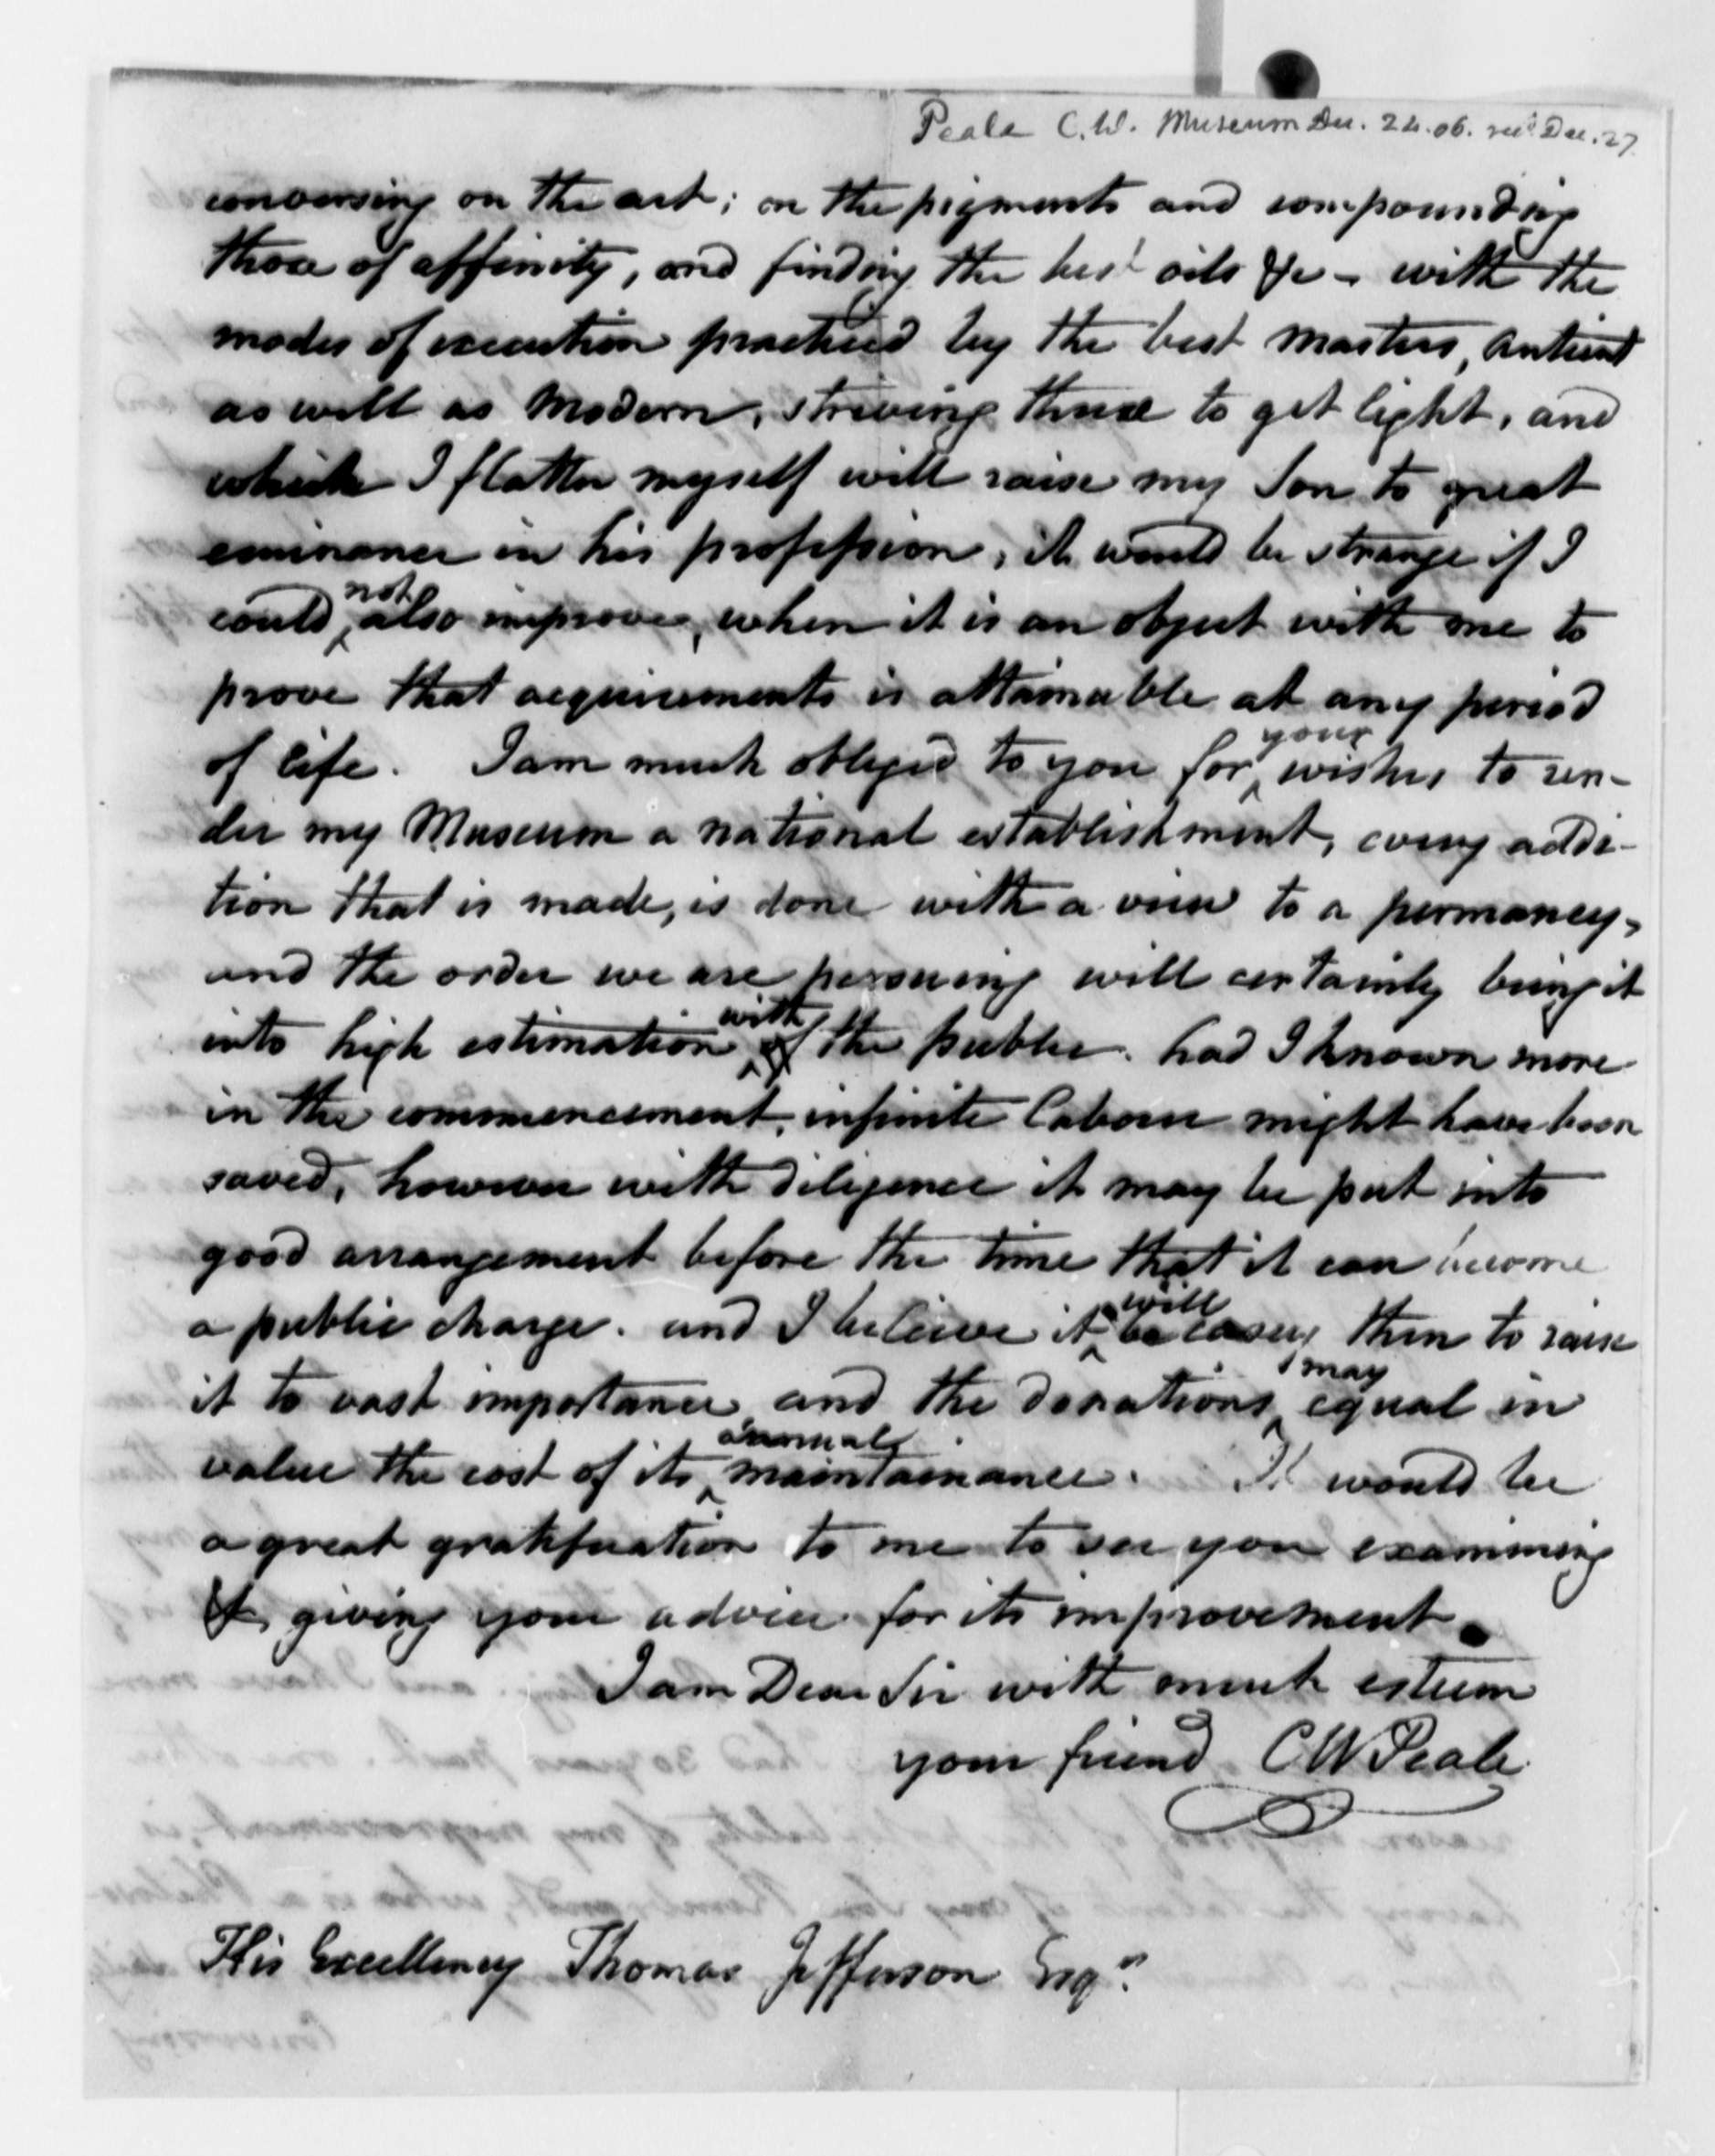 Peale C.W. Museum Dec. 24. 06. recd Dec. 27.
conversing on the art; on the pigments and compounding
those of affinity, and finding the best oils &c - with the
modes of execution practiced by the best Masters, Antient
as well as Modern, striving thus to get light, and
which I flatter myself will raise my Son to great
eminance in his profession, it would be strange if I
could not also improve, when it is an object with me to
prove that acquirements is attainable at any period
of life. I am much obliged to you for your wishes to ren-
der my Museum a national establishment, every addi-
tion that is made, is done with a view to a permancy,
and the order we are persuing will certainly bring it
into high estimation with of the public. had I known more
in the commencement, infinite labour might have been
saved, however with diligence it may be put into
good arrangement before the time that it can become
a public charge. and I beleive it will be easey then to raise
it to vast importance and the donations may equal in
value the cost of its annual maintainance. It would be
a great gratification to me to see you examining
& giving your advice for its improvement.
I am Dear Sir with much esteem
your friend CW Peale
His Excellency Thomas Jefferson Esqr.